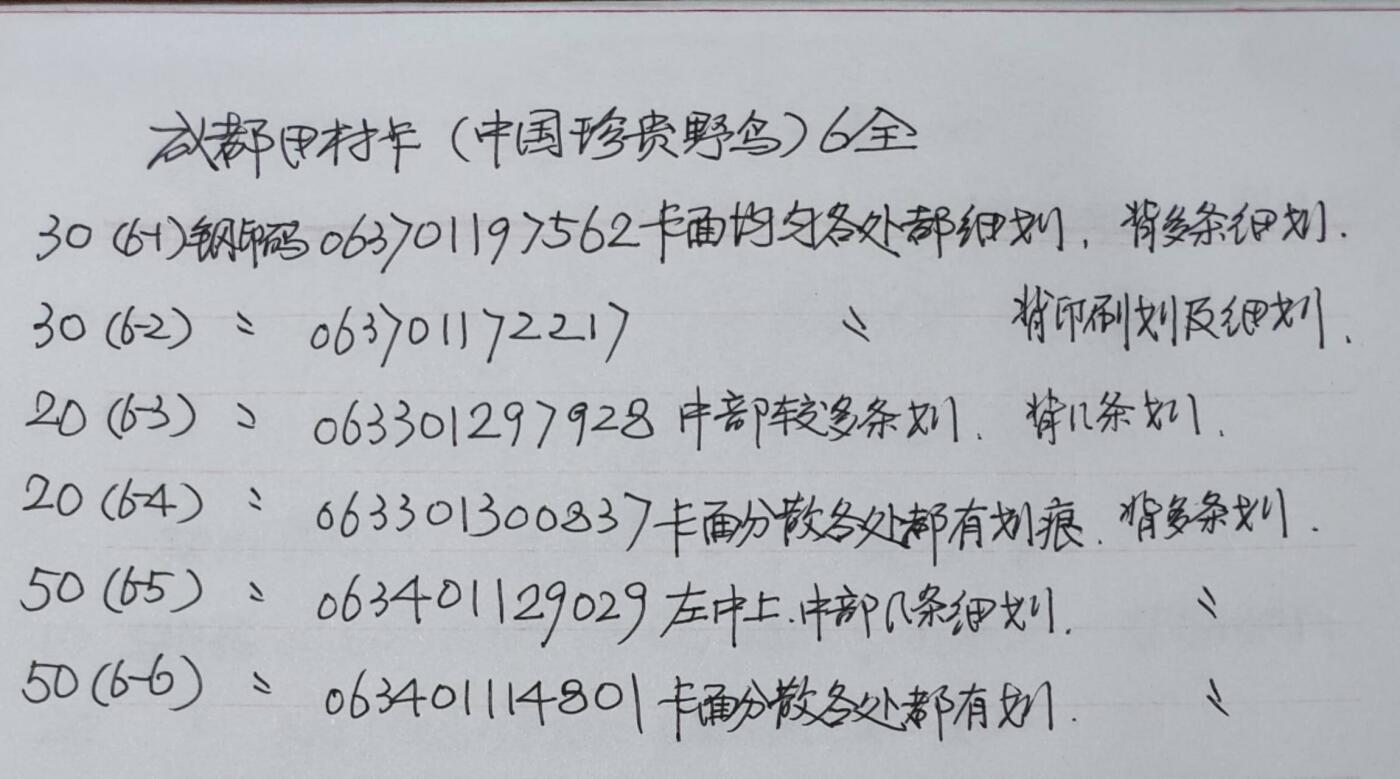 成都田村卡（中国珍贵野鸟）6全
30（6-1）钢印码063701197562卡面均匀各处都细划，背多条细划.
30（6-2）〃 063701172217 〃 背印刷划及细划.
20（6-3）〃 063301297928中部较多条划. 背几条划.
20（6-4）〃 063301300837卡面分散各处都有划痕. 背多条划.
50（6-5）〃 063401129029左中上.中部几条细划. 〃
50（6-6）〃 063401114801卡面分散各处都有划. 〃